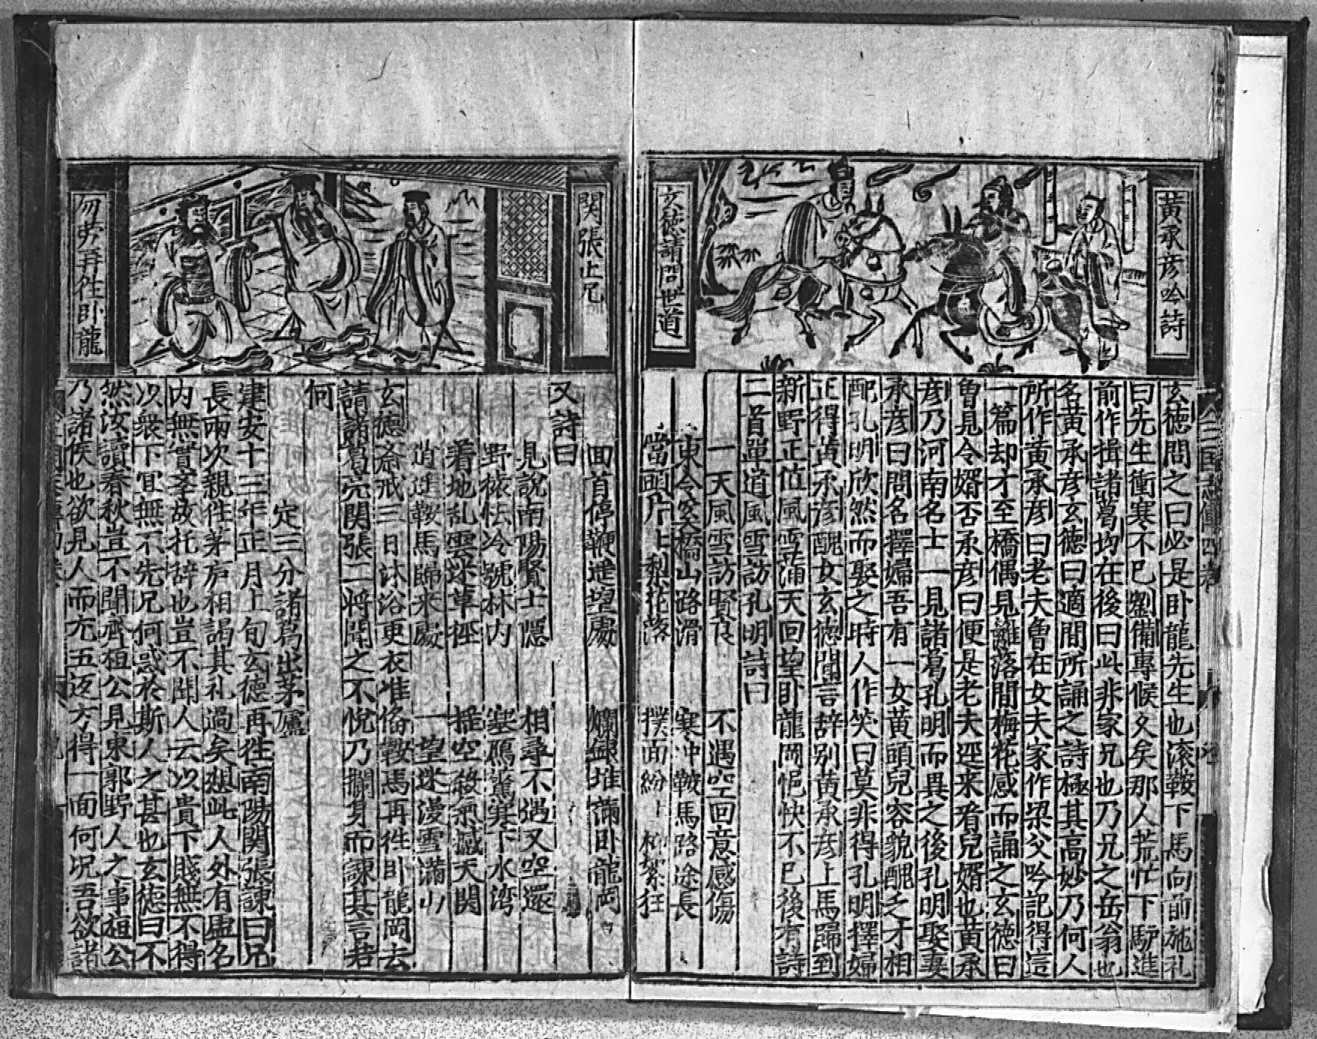 黃承彦吟詩
玄德請問世道
玄德問之曰必是卧龍先生也滚鞍下馬向前施礼
曰先生衝寒不已劉備專候久矣那人荒忙下馿進
前作揖諸葛均在後曰此非家兄也乃兄之岳翁也
名黃承彦玄德曰適間所誦之詩極其高妙乃何人
所作黃承彦曰老夫魯在女夫家作梁父吟記得這
一篇却才至橋偶見籬落間梅花感而誦之玄德曰
曾見令婿否承彦曰便是老夫逕来看兒婿也黃承
彦乃河南名士一見諸葛孔明而異之後孔明娶妻
承彦曰問名擇婦吾有一女黃頭兒容貌醜之才相
配孔明欣然而娶之時人作笑曰莫非得孔明擇婦
正得黃承彦醜女玄德聞言辞别黃承彦上馬歸到
新野正值風雪滿天回望卧龍岡悒怏不已後有詩
二首單道風雪訪孔明詩曰
一天風雪訪賢良 不遇空回意感傷
東合溪橋山路滑 寒冲鞍馬路途長
當頭片片梨花落 撲面紛紛柳絮狂
関張止兄
勿劳再徃卧龍
回首停鞭遥望處 爛銀堆滿卧龍岡
又詩曰
見說南陽賢士隱 相尋不遇又空還
野猿怯冷號林内 塞鴈驚寒下水湾
着地乱雲迷草徑 推空殺氣滅天関
逍遥鞍馬歸来處 一望迷漫雪滿山
玄德斎戒三日沐浴更衣准俻鞍馬再徃卧龍岡去
請諸葛亮関張二将聞之不悅乃攔身而諫其言若
何
定三分諸葛出茅廬
建安十三年正月上旬玄德再徃南陽関張諫曰兄
長兩次親徃茅庐相謁其礼過矣想此人外有虚名
内無實孝故托辞也豈不聞人云以貴下賤無不得
以衆下宜無不先兄何惑於斯人之甚也玄德曰不
然汝讀春秋豈不聞齊桓公見東郭野人之事桓公
乃諸侯也欲見人而尢五返方得一面何况吾欲諸